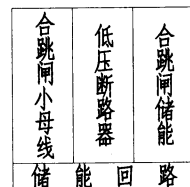 合跳闸小母线
低压断路器
合跳闸储能
储能回路